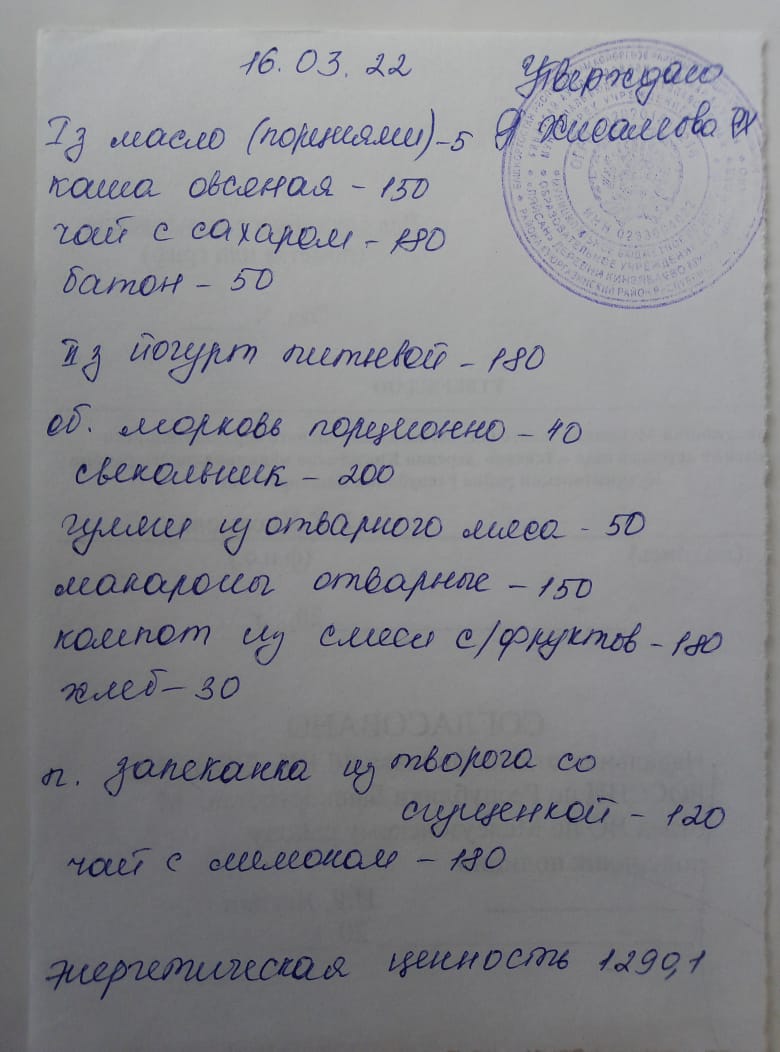 16.03.22
Утверждаю
Хисамова РХ
Iз масло (порциями) - 5
каша овсяная - 150
чай с сахаром - 180
батон - 50
IIз йогурт питьевой - 180
об. морковь порционно - 40
свекольник - 200
гуляш из отварного мяса - 50
макароны отварные - 150
компот из смеси с/фруктов - 180
хлеб - 30
п. запеканка из творога со
сгущенкой - 120
чай с лимоном - 180
энергетическая ценность 1290,1
СОГЛАСОВАНО